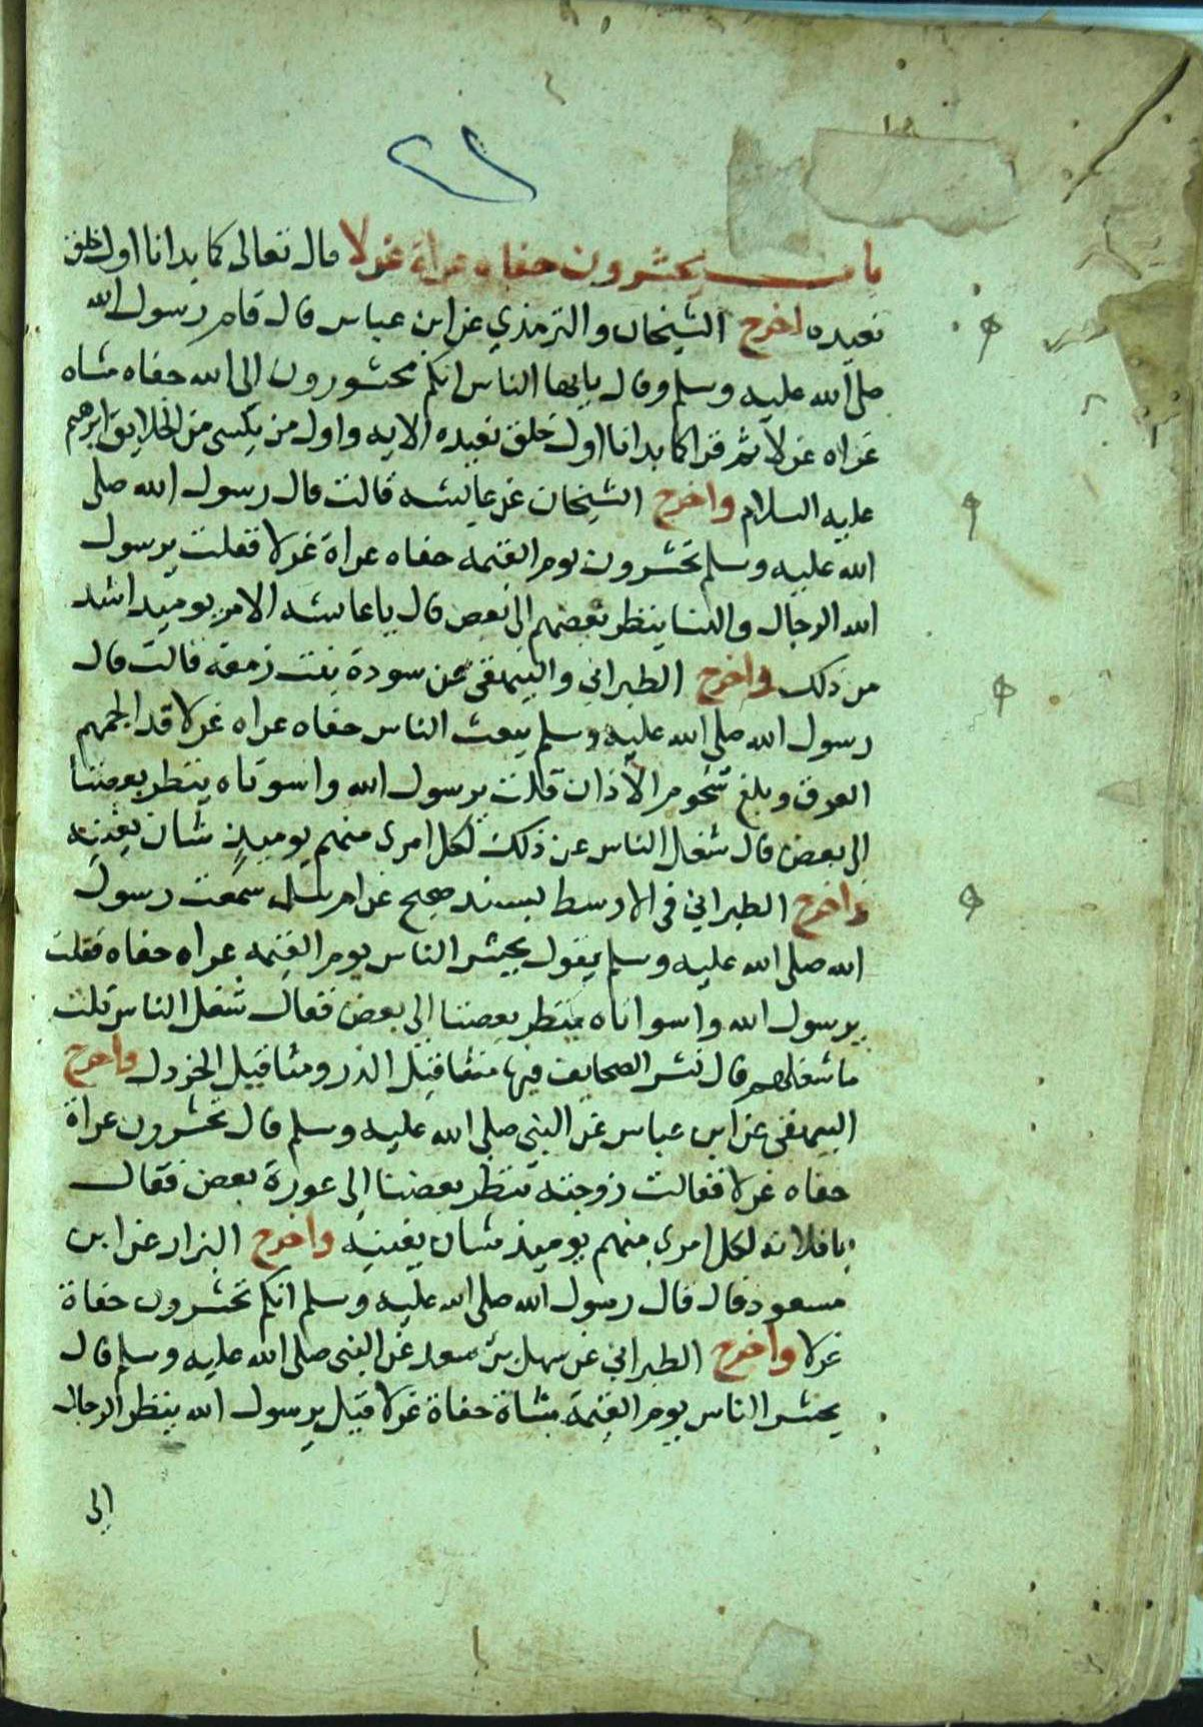 باب يحشرون حفاه عراة غرلا قال تعالى كما بدانا اول خلق
نعيده اخرج الشيخان والترمذي عن ابن عباس قال قام رسول الله
صلى الله عليه وسلم وقال يايها الناس انكم محشورون الى الله حفاه مشاه
عراه غرلا ثم قرا كما بدانا اول خلق نعيده الايه واول من يكسى من الخلايق ابرهيم
عليه السلام واخرج الشيخان عن عايشه قالت قال رسول الله صلى
الله عليه وسلم تحشرون يوم القيمة حفاه عراة غرلا فقلت يرسول
الله الرجال والنسا ينظر بعضهم الى بعض قال ياعايشه الامر يوميد اشد
من ذلك واخرج الطبراني والبيهقى عن سودة بنت زمعة قالت قال
رسول الله صلى الله عليه وسلم يبعث الناس حفاه عراه غرلا قد الجمهم
العرق وبلغ شحوم الاذان قلت يرسول الله واسوتاه ينظر بعضنا
الى بعض قال شغل الناس عن ذلك لكل امرى منهم يوميذ شان يغنيه
واخرج الطبراني في الاوسط بسند صحيح عن ام سلمه سمعت رسول
الله صلى الله عليه وسلم يقول يحشر الناس يوم القيمه عراه حفاه فقلت
يرسول الله واسواتاه ينظر بعضنا الى بعض فقال شغل الناس قلت
ما شغلهم قال نشر الصحايف فيها مثقاقيل الذر ومثاقيل الخردل واخرج
البيهقى عن ابن عباس عن النبي صلى الله عليه وسلم قال تحشرون عراة
حفاه غرلا فقالت زوجته ينظر بعضنا الى عورة بعض فقال
يافلانه لكل امرى منهم يوميذ شان يغنيه واخرج البزار عن ابن
مسعود قال قال رسول الله صلى الله عليه وسلم انكم تحشرون حفاة
غرلا واخرج الطبراني عن سهل بن سعد عن النبى صلى الله عليه وسلم قال
يحشر الناس يوم القيمة مشاة حفاة غرلا قيل يرسول الله ينظر الرجال
الى